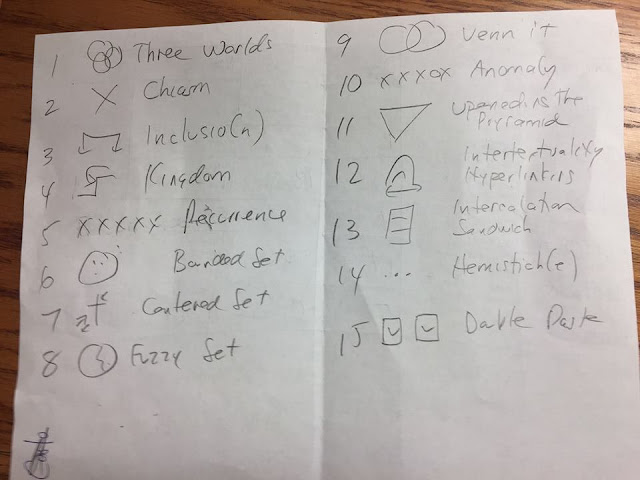 1 Three Worlds
2 Chiasm
3 Inclusio(n)
4 Kingdom
5 XXXXX Recurrence
6 Bounded Set
7 Centered Set
8 Fuzzy Set
9 Venn it
10 XXXOX Anomaly
11 the
Pyramid
12 Intertextuality
Hyperlinks
13 Intercalation
Sandwich
14 ... Hemistich(e)
15 Double Paste